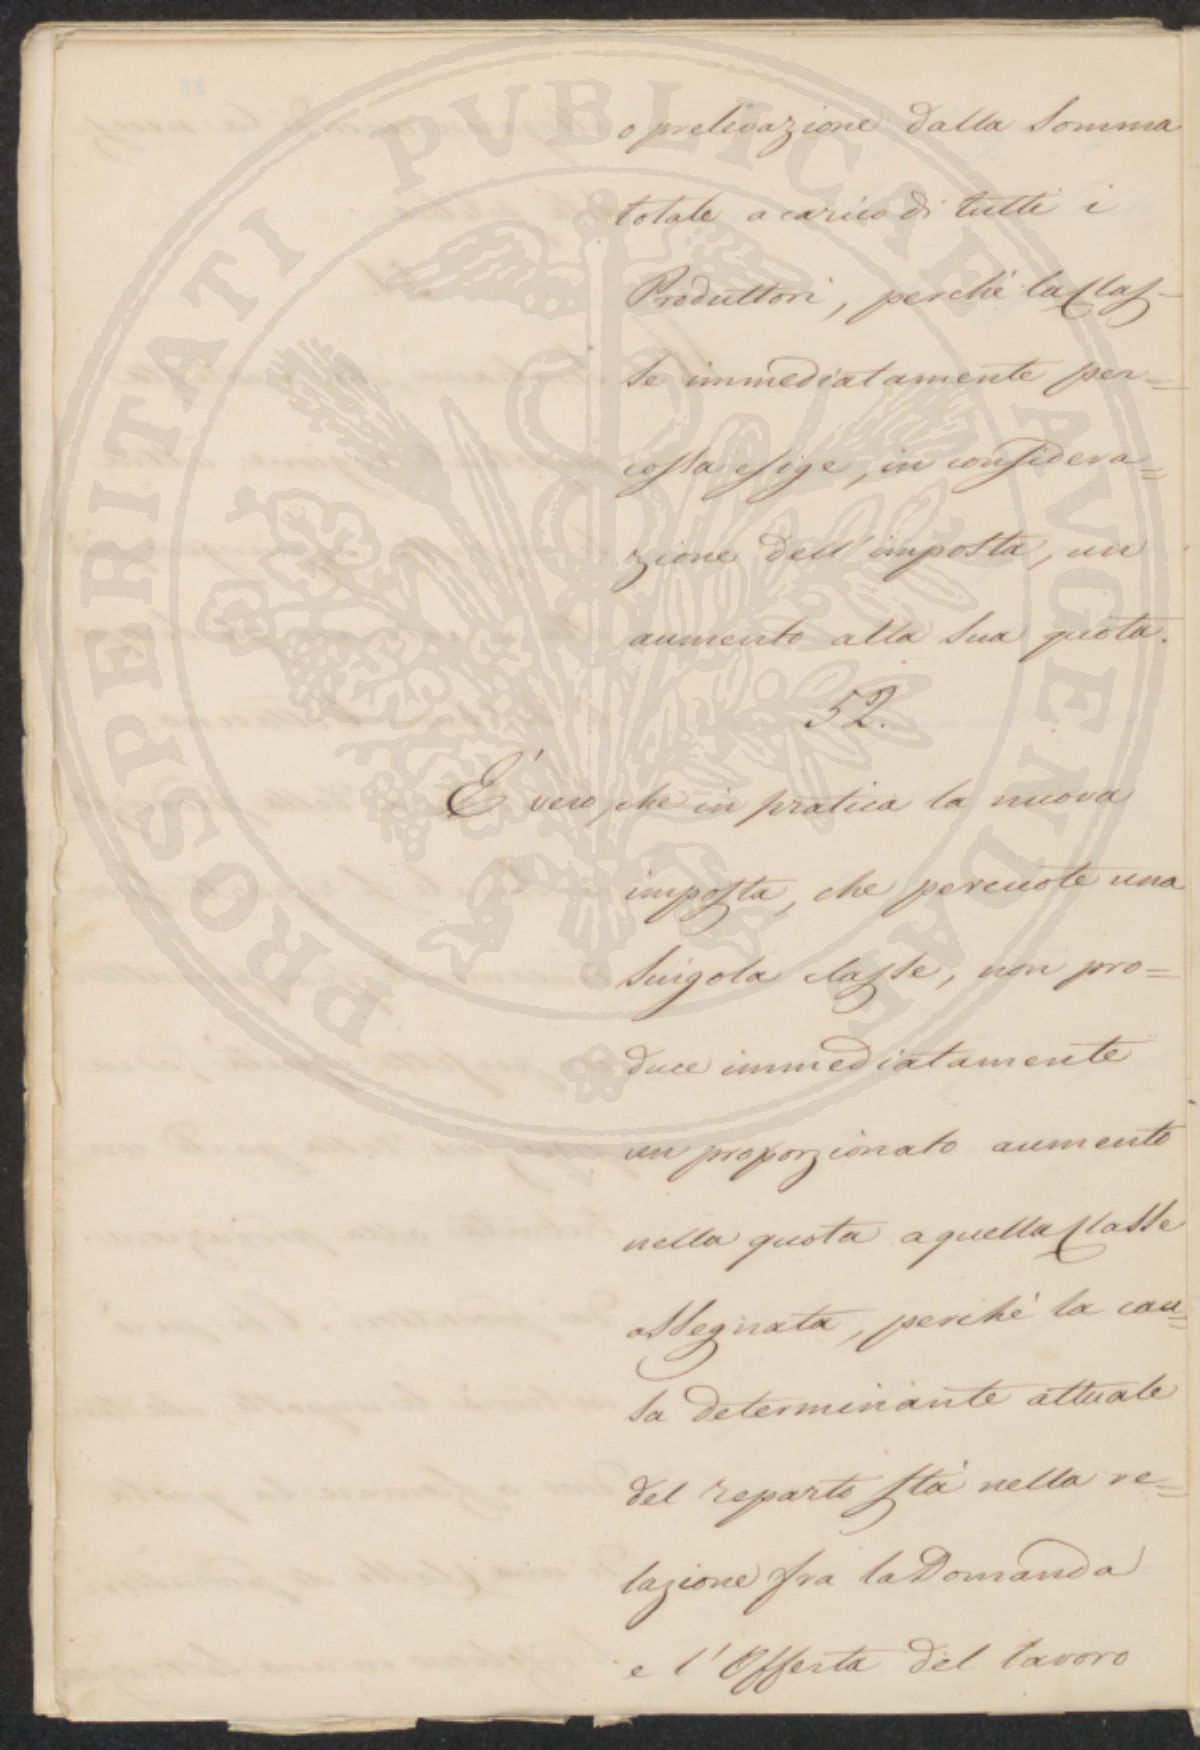 o prelevazione dalla somma
totale a carico di tutti i
Produttori, perchè la Clas-
se immediatamente per=
cossa esige, in considera=
zione dell'imposta, un
aumento alla sua quota.
52.
E' vero, che in pratica la nuova
imposta, che percuote una
singola classe, non pro=
duce immediatamente
un proporzionato aumento
nella quota a quella Classe
assegnata, perchè la cau=
sa determinante attuale
del reparto stà nella re=
lazione fra la Domanda
e l'Offerta del lavoro
PROSPERITATI PVBLICAE AVGENDAE